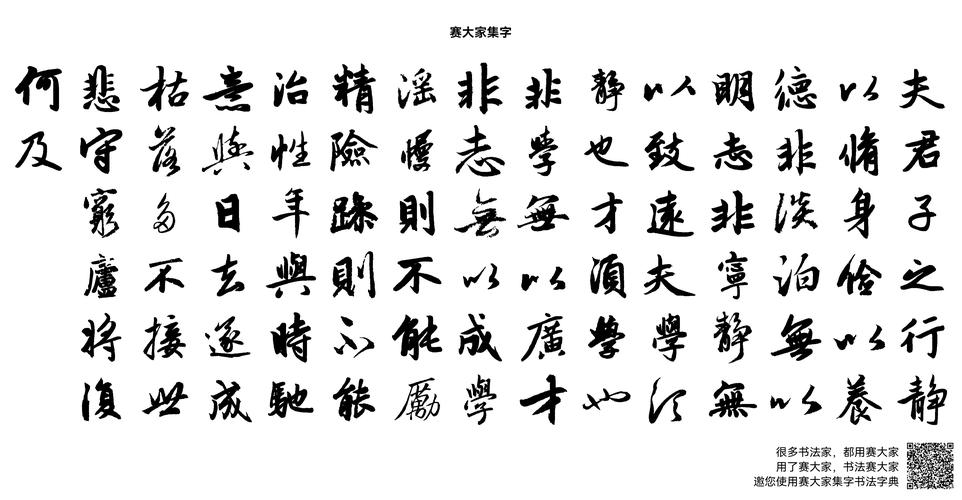 赛大家集字
夫君子之行靜
以脩身儉以養
德非淡泊無以
明志非寧靜無
以致遠夫學須
靜也才須學也
非學無以廣才
非志無以成學
淫慢則不能勵
精險躁則不能
治性年與時馳
意與日去遂成
枯落多不接世
悲守窮廬將復
何及
很多书法家，都用赛大家
用了赛大家，书法赛大家
邀您使用赛大家集字书法字典